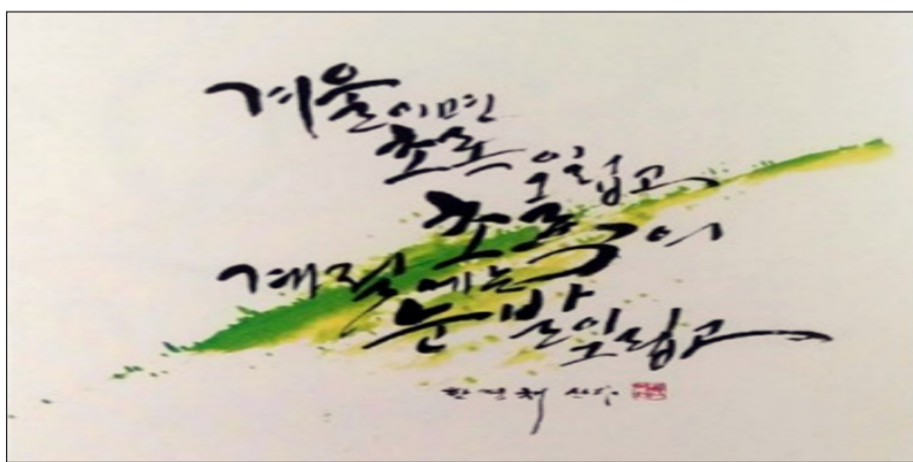 겨울이면
초록 그립고
초록의
계절에는
눈발 그립고